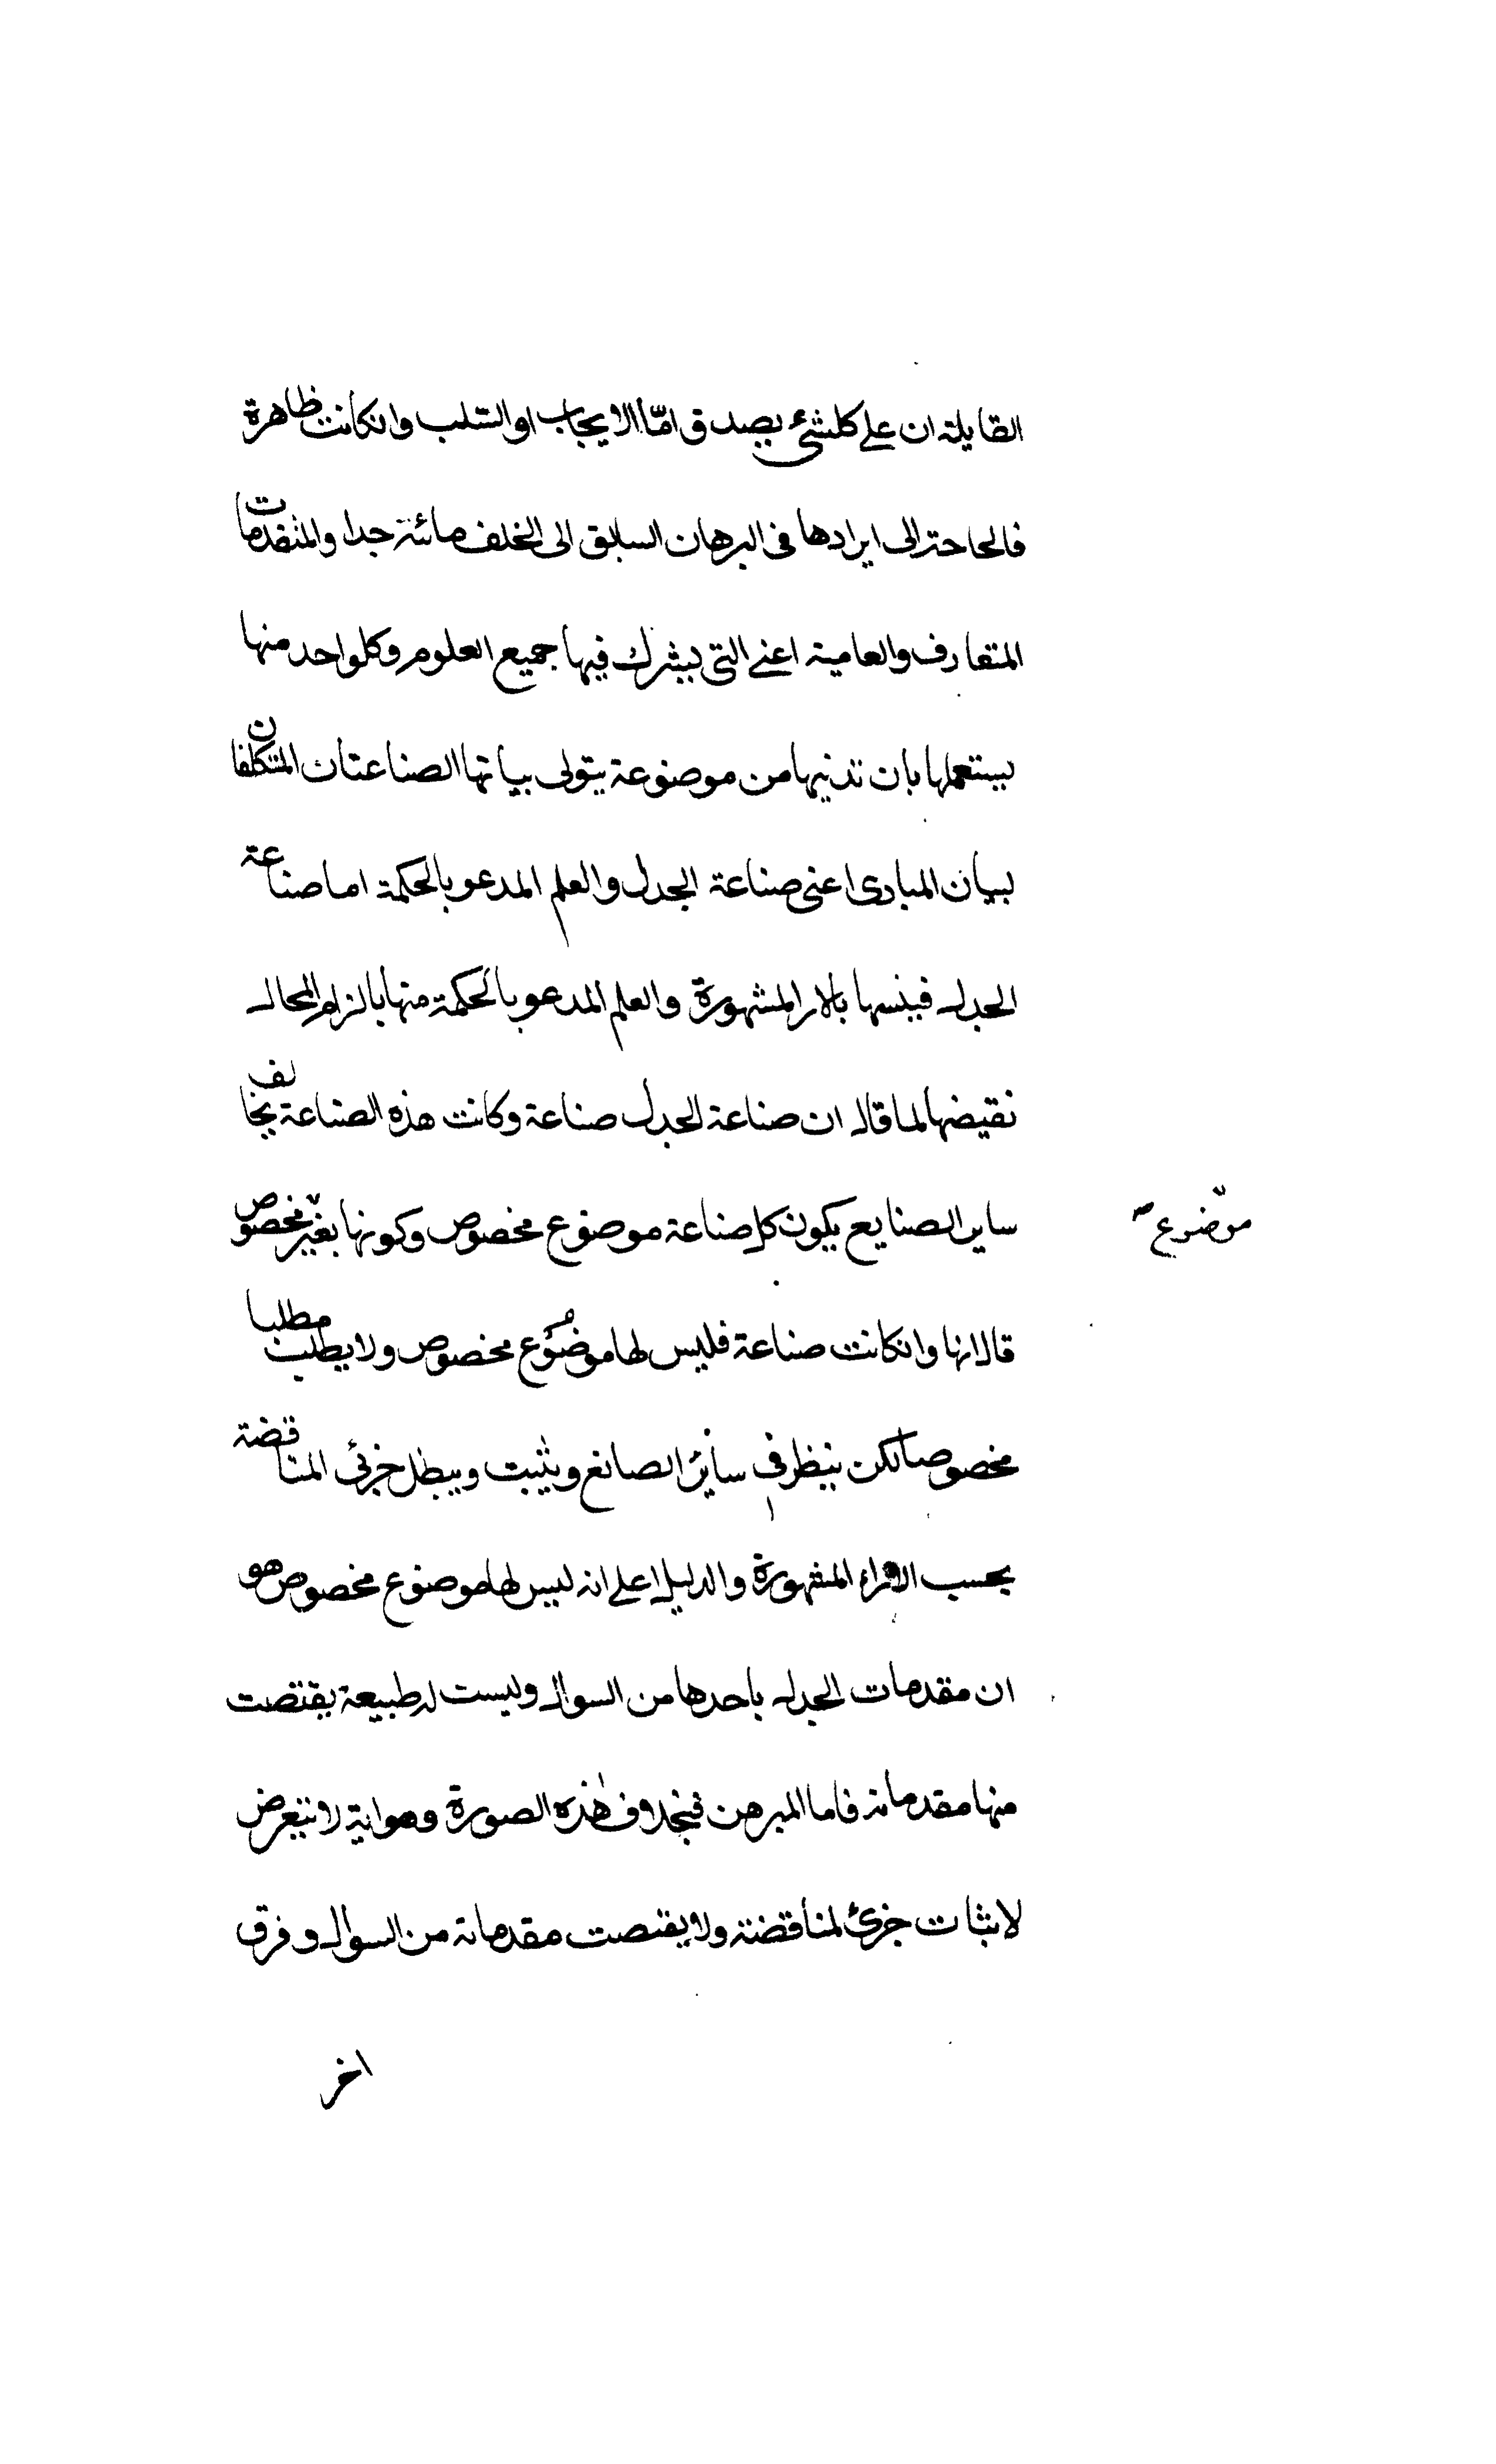 القايلة ان على كلشئ يصدق امّا الايجاب او السّلب وانكانت ظاهرة
فالحاحة الى ايرادها فى البرهان السابق الى الخلف مائتة جدا والمتقدمات
المتعارف والعامية اعنے التى يشرك فيها جميع العلوم وكلواحد منها
يستعملها بان تدنيها من موضوعة يتولى بياتها الصناعتان المتكلفان
لبيان المبادى اعنى صناعة الجدل والعلم المدعو بالحكمة اما صناعة
الجدل فينسها بالار المشهورة والعلم المدعو بالحكمة منها بالزام المحال
نقيضها لما قال ان صناعة الجدل صناعة وكانت هذه الصناعة يخالف
ساير الصنايع يكون كل صناعة موضوع مخصوص وكونها بغير مخصوص
موضوع
قال انها وانكانت صناعة فليس لها موضوع مخصوص ولا يطلب مطلبا
مخصوصا لكن ينظر فى سائر الصانع ويثبت ويبطل جزئى المناقضة
بحسب الاراء المشهورة والدليل على انه ليس لها موضوع مخصوص هو
ان مقدمات الجدل باحدها من السوال وليست له طبيعة يقتضت
منها مقدماته فاما المبرهن فبخلاف هذه الصورة وهوانية لا يتعرض
لاثبات جزئ لمناقضة ولا يقتصت مقدماتة من السوال وفرق
اخر